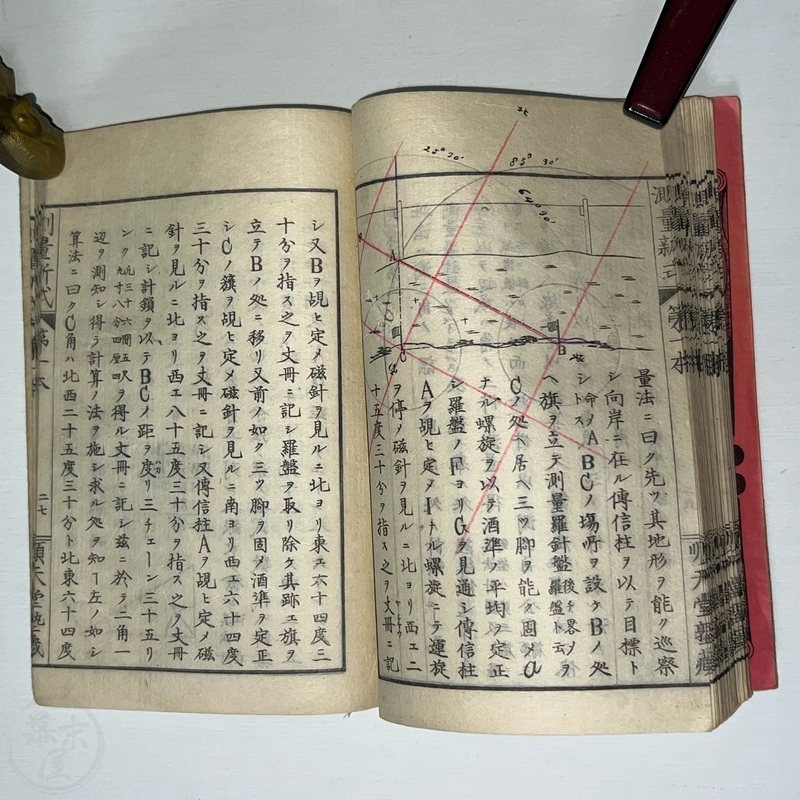 25° 30′
85° 30′
64° 30′
北
A
C
B
測量新式
第一本
順天堂塾蔵
量法ニ曰ク先ツ其地形ヲ能ク巡察
シ向岸ニ在ル傳信柱ヲ以テ目標ト
シ命ノABCノ場所ヲ設ケBノ処
シトス
ヘ旗ヲ立テ測量羅針盤後チ畧メヲ羅盤ト云フヲ
Cノ処ヘ居ヘ三ツ脚ヲ能ク固メa
ナル螺旋ヲ以テ酒準ヲ平均ヲ定正
シ羅盤ノFヨリGヲ見通シ傳信柱
Aヲ覘ヒ定メIナル螺旋ニテ運旋
ヲ停メ磁針ヲ見ルニ北ヨリ西エ二
十五度三十分ヲ指ス之ヲ丈冊ニ記
シ又Bヲ覘ヒ定メ磁針ヲ見ルニ北ヨリ東エ六十四度三
十分ヲ指ス之ヲ丈冊ニ記シ羅盤ヲ取リ除ケ其跡エ旗ヲ
立テBノ処ニ移リ又前ノ如ク三ツ脚ヲ固メ酒準ヲ定正
シCノ籏ヲ覘ヒ定メ磁針ヲ見ルニ南ヨリ西エ六十四度
三十分ヲ指ス之ヲ丈冊ニ記シ又傳信柱Aヲ覘ヒ定メ磁
針ヲ見ルニ北ヨリ西エ八十五度三十分ヲ指ス之ヲ丈冊
ニ記シ計鎖ヲ以テBCノ距ヲ度リ三チェーン三十五リ
ンクヲ得ル丈冊ニ記シ茲ニ於テ二角一
辺ヲ測知シ得テ計算ノ法ヲ施シ求ル処ヲ知ー左ノ如シ
算法ニ曰ククC角ハ北西二十五度三十分ト北東六十四度
測量新式
第一本
二七
順天堂塾蔵
幕末屋